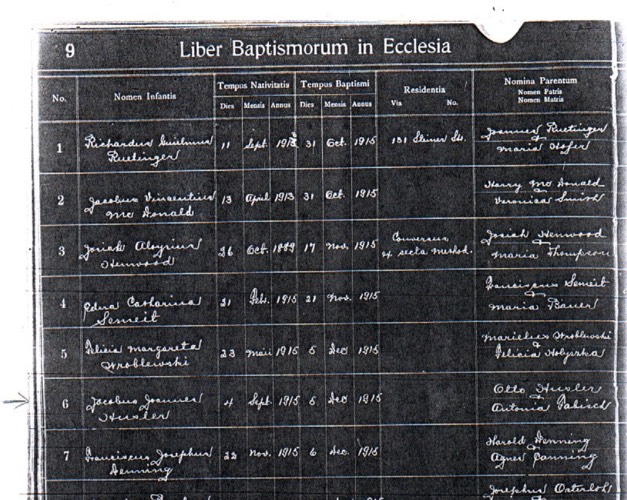 9 Liber Baptismorum in Ecclesia
No. Nomen Infantis Tempus Nativitatis Tempus Baptismi Residentia Nomina Parentum
Dies Mensis Annus Dies Mensis Annus Via No. Nomen Patris
Nomen Matris
1 Richardus Guilmus 11 Sept. 31 Oct. 1915 131 Steiner St. Joannes Ruetinger
Ruetinger Maria Hofer
2 Jacobus Vincentius 13 April 1913 31 Oct. 1915 Harry McDonald
McDonald Veronica Smith
3 Josiah Aloysius 26 Oct. 1889 17 Nov. 1915 Conversus Josiah Henwood
Henwood ex secta Method. Maria Thompson
4 Edna Catharina 21 Feb. 1915 21 Nov. 1915 Franciscus Semeit
Semeit Maria Bauer
5 Felicia Margareta 23 Maii 1915 5 Dec 1915 Wroblewski
Wroblewski Felicia
6 Jacobus Joannes 4 Sept. 1915 5 Dec 1915 Otto Husler
Husler Antonia
7 Franciscus Josephus 22 Nov. 1915 6 Dec. 1915 Harold Denning
Denning Agnes Canning
Josephus